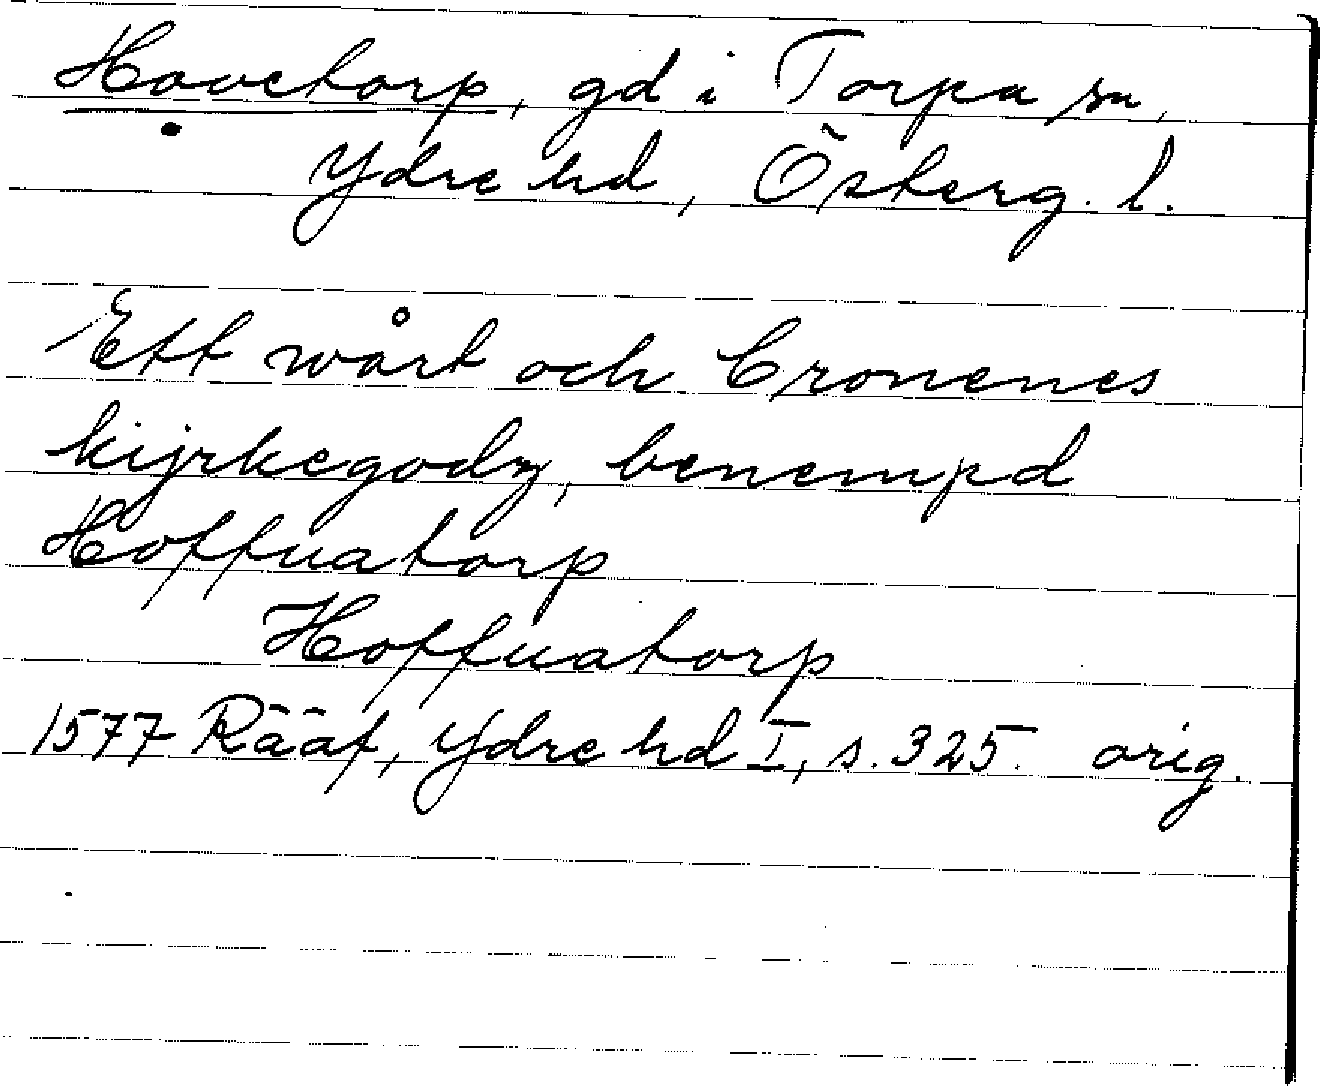 Hovetorp, gd i Torpa sn,
Ydre hd, Österg. l.
Ett wårt och Cronenes
kijrkegodz, benempd
Hoffuatorp
Hoffuatorp
1577 Rääf, Ydre hd I, s. 325. orig.